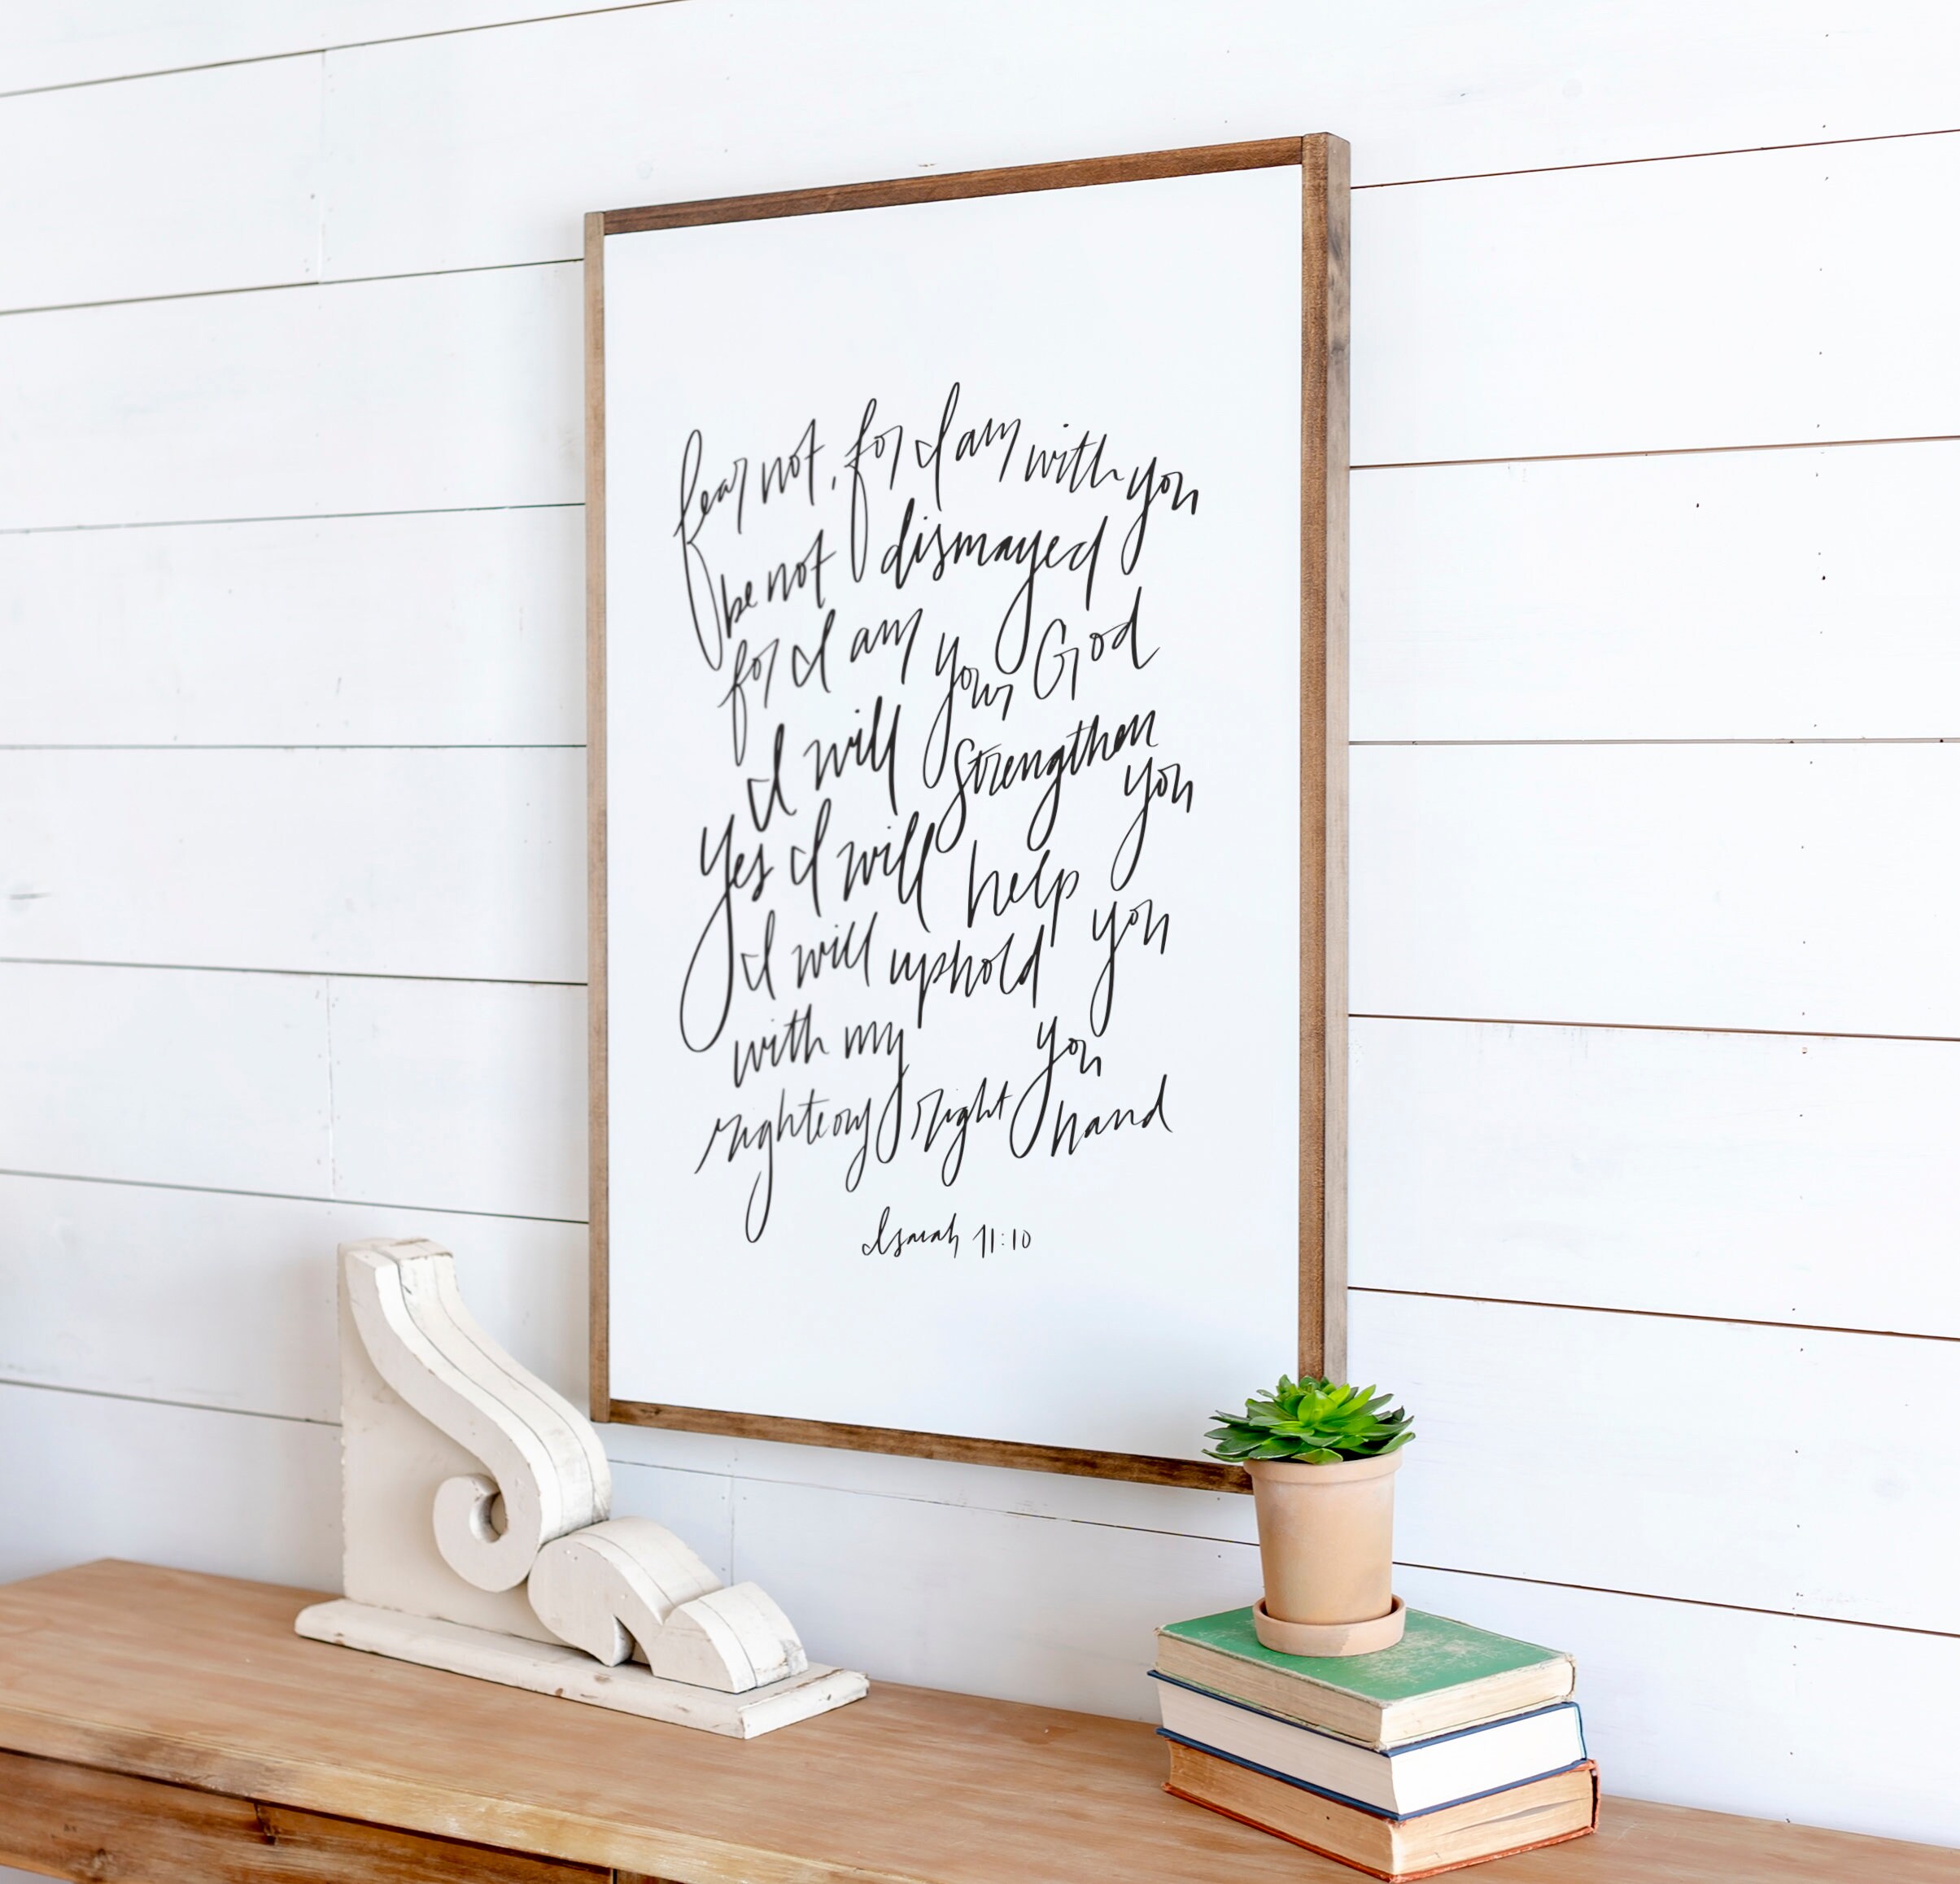 fear not, for I am with you
be not dismayed
for I am your God
I will strengthen you
yes I will help you
I will uphold you
with my
righteous right hand
Isaiah 11:10